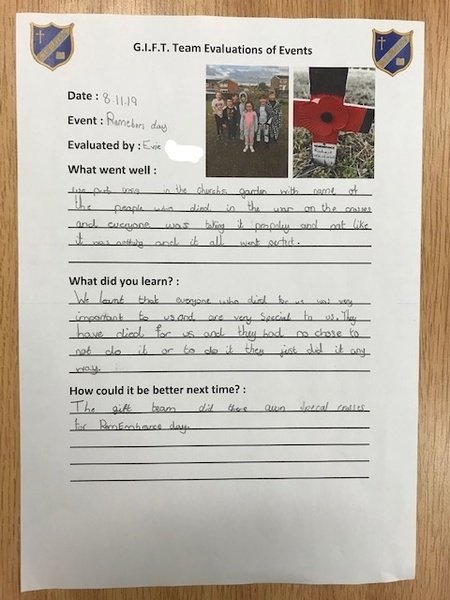 G.I.F.T. Team Evaluations of Events
Date : 8.11.19
Event : Rembers day
Evaluated by : Evie
What went well :
We put in the churchs garden with name of
the people who died in the war on the crosses
and everyone was taking it propley and not like
it was nothing and it all went perfect.
What did you learn? :
We learnt that everyone who died for us was very
important to us and are very special to us. They
have died for us and they had no chose to
not do it or to do it they just did it any
way.
How could it be better next time? :
The gift team did there own special crosses
for RemEmbrance day.